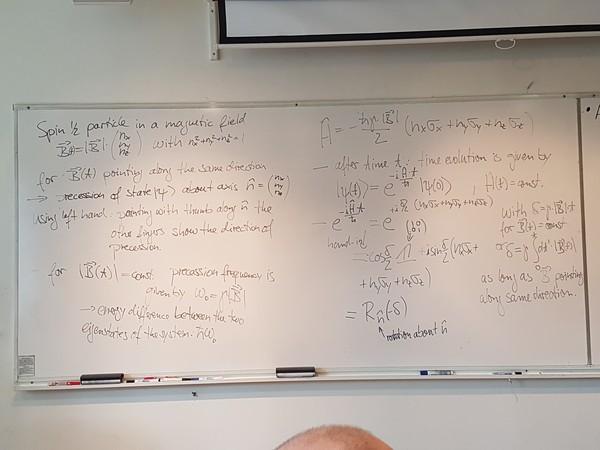 Spin ½ particle in a magnetic field
B⃗(t) = |B⃗| · (nx ny nz) with nx²+ny²+nz² = 1
for B⃗(t) pointing along the same direction
→ precession of state |ψ⟩ about axis n̂ = (nx ny nz)
using left hand. pointing with thumb along n̂ the
other fingers show the direction of
precession.
for |B⃗(t)| = const. precession frequency is
given by ω₀ = γ|B⃗|
→ energy difference between the two
eigenstates of the system: ħω₀
Ĥ = - ħγ|B⃗|/2 (nxσx + nyσy + nzσz)
— after time t: time evolution is given by
|ψ(t)⟩ = e^(-iĤt/ħ) |ψ(0)⟩, Ĥ(t) = const.
— e^(-iĤt/ħ) = e^(i δ/2 (nxσx+nyσy+nzσz))
hand-in!
= cos δ/2 𝟙 + i sin δ/2 (nxσx +
+ nyσy + nzσz)
= Rn̂(-δ)
rotation about n̂
with δ = γ·|B⃗|·t
for B⃗(t) = const
or δ = γ ∫dt' |B⃗(t)|
as long as B⃗ pointing
along same direction.